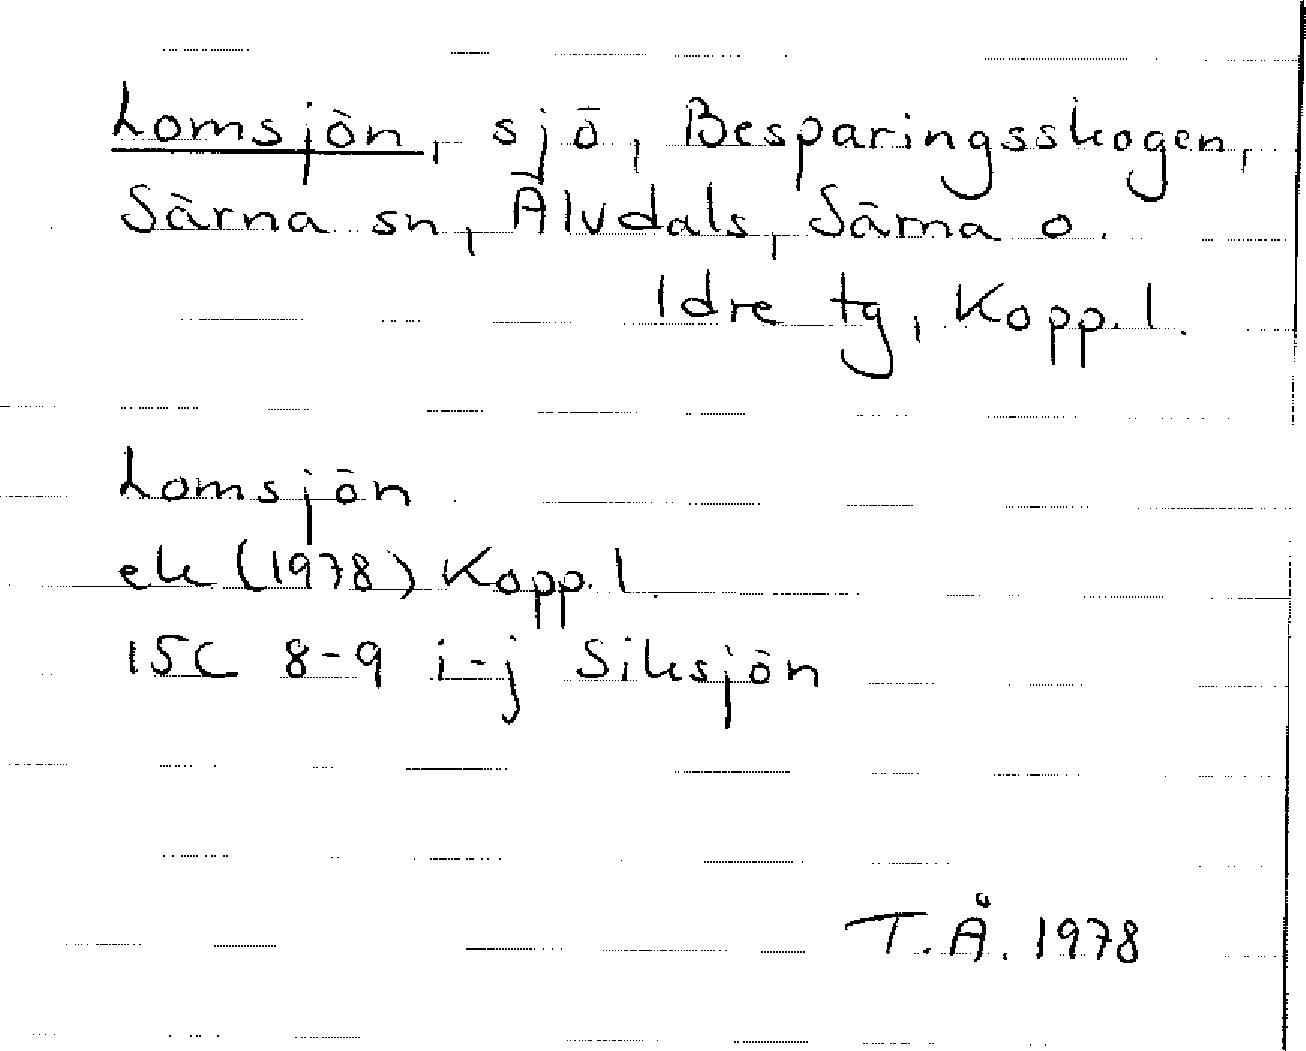 Lomsjön, sjö, Besparingsskogen,
Särna sn, Älvdals, Särna o.
Idre tg, Kopp. l.
Lomsjön
ek (1978) Kopp. l.
15C 8-9 i-j Siksjön
T.Å. 1978